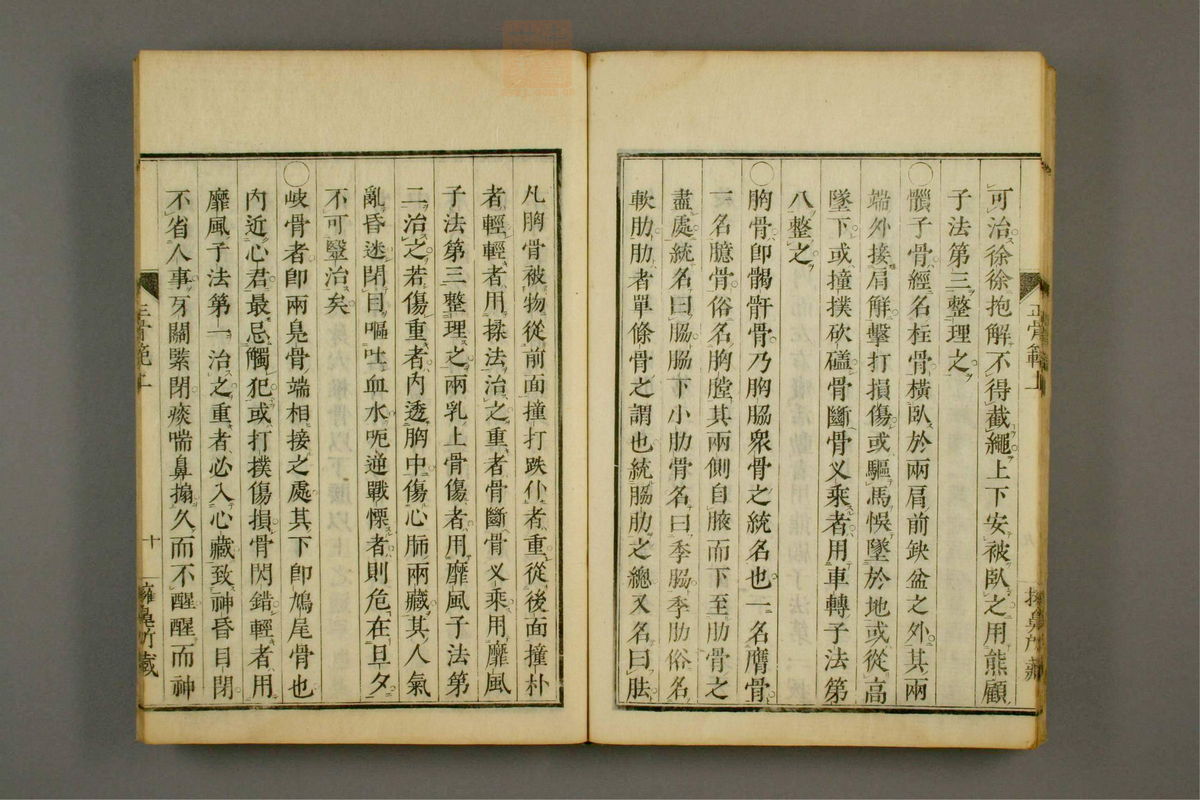 可治徐徐抱解不得截繩上下安被臥之用熊顧
子法第三整理之
○髃子骨經名柱骨橫臥於兩肩前缺盆之外其兩
端外接肩解擊打損傷或驅馬悞墜於地或從高
墜下或撞撲砍磕骨斷骨叉乘者用車轉子法第
八整之
○胸骨卽𩩲骬骨乃胸脇衆骨之統名也一名膺骨
一名臆骨俗名胸膛其兩側自腋而下至肋骨之
盡處統名曰脇脇下小肋骨名曰季脇季肋俗名
軟肋肋者單條骨之謂也統脇肋之總又名曰胠
正骨範上
凡胸骨被物從前面撞打跌仆者重從後面撞朴
者輕輕者用揉法治之重者骨斷骨叉乘用靡風
子法第三整理之兩乳上骨傷者用靡風子法第
二治之若傷重者內透胸中傷心肺兩藏其人氣
亂昏迷閉目嘔吐血水呃逆戰慄者則危在旦夕
不可毉治矣
○岐骨者卽兩鳧骨端相接之處其下卽鳩尾骨也
內近心君最忌觸犯或打撲傷損骨閃錯輕者用
靡風子法第一治之重者必入心藏致神昏目閉
不省人事牙關緊閉痰喘鼻搧久而不醒醒而神
十
擁鼻竹藏